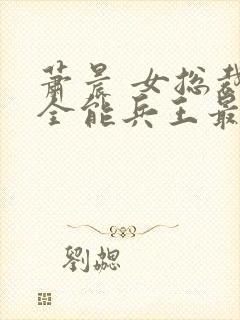 萧晨 女总裁
全能兵王最
劉勰